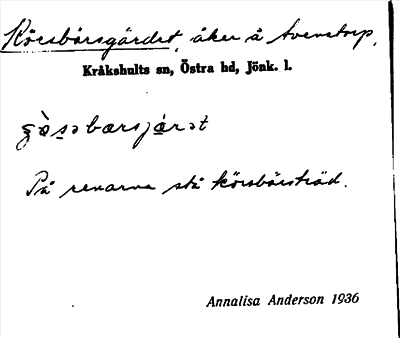 Körsbärsgärdet, åker å Svenstorp,
Kråkshults sn, Östra hd, Jönk. l.
På renarna stå körsbärsträd.
Annalisa Anderson 1936